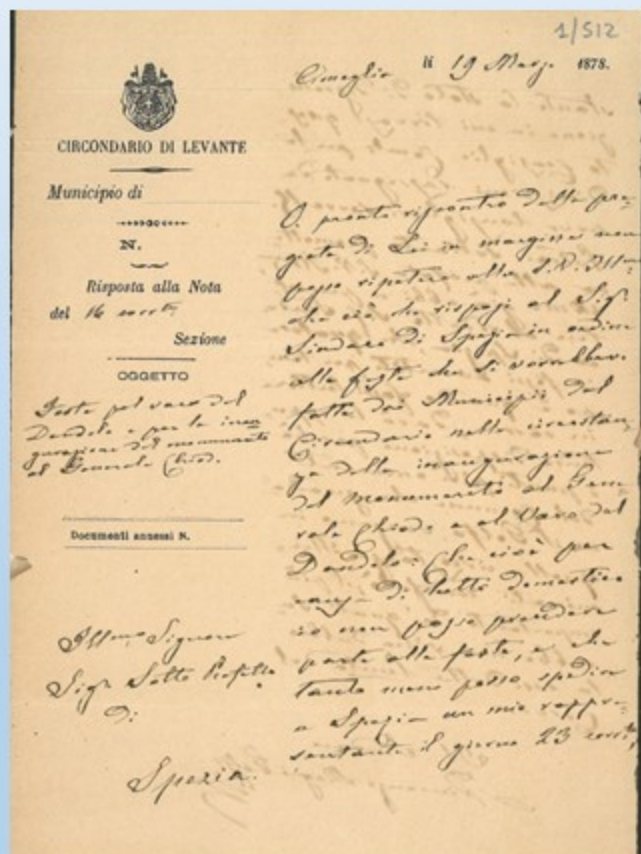 1/512
li 19 Marzo 1878.
CIRCONDARIO DI LEVANTE
Municipio di
N.
Risposta alla Nota
del 16 corrte
Sezione
OGGETTO
Feste pel varo del
Dandolo e per la inau
gurazione del monumento
al Generale Chiodo.
Documenti annessi N.
Illmo Signore
Sigr Sotto Prefetto
di
Spezia.
A pronto riscontro della pre
giata di Lei in margine non
posso ripetere alla S.V. Illma
che ciò che risposi al Sigr
Sindaco di Spezia in ordine
alle feste che si vorrebbero
fatte dai Municipii del
Circondario nella circostan
za della inaugurazione
del monumento al Gene
rale Chiodo e al Varo del
Dandolo: Che cioè per
causa di lutto domestico
io non posso prendere
parte alle feste, e che
tanto meno posso spedire
a Spezia un mio rappre
sentante il giorno 23 corrte,